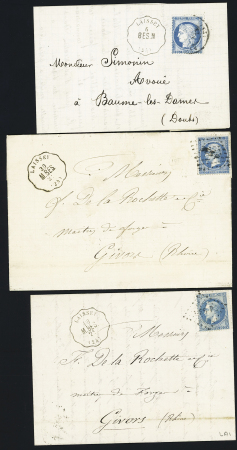 LAISSEY
6
BES.M
Monsieur Simonin
Avoué
à Baume-les-Dames
(Doubs)
LAISSEY
Messieurs
F. De la Rochette & Cie
maîtres de forges
Givors (Rhône)
LAISSEY
Messieurs
F. De la Rochette & Cie
maîtres de Forges
Givors (Rhône)